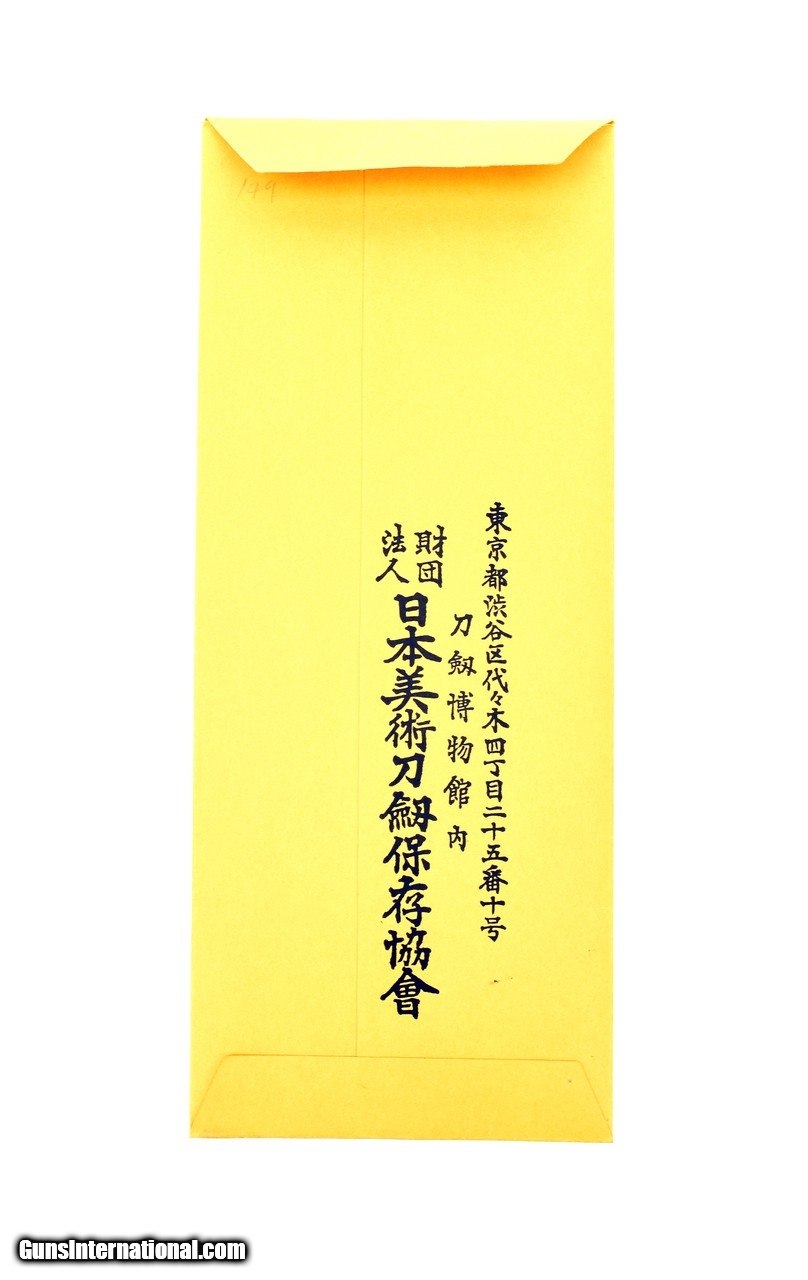 149
東京都渋谷区代々木四丁目二十五番十号
刀剱博物館内
財団
法人
日本美術刀剱保存協會
GunsInternational.com